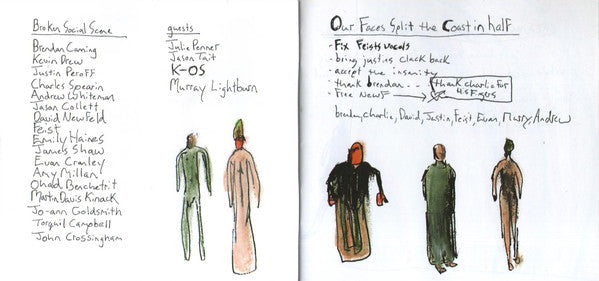 Broken Social Scene
Brendan Canning
Kevin Drew
Justin Peroff
Charles Spearin
Andrew Whiteman
Jason Collett
David Newfeld
Feist
Emily Haines
James Shaw
Evan Cranley
Amy Millan
Ohad Benchetrit
Martin Davis Kinack
Jo-ann Goldsmith
Torquil Campbell
John Crossingham
guests
Julie Penner
Jason Tait
K-OS
Murray Lightburn
Our Faces Split the Coast in half
- Fix Feists vocals
- bring justins clack back
- accept the insanity
- thank brendan...
thank charlie for
his Figers
- Free Newf
brendan, charlie, David, Justin, Feist, Evan, Murry, Andrew